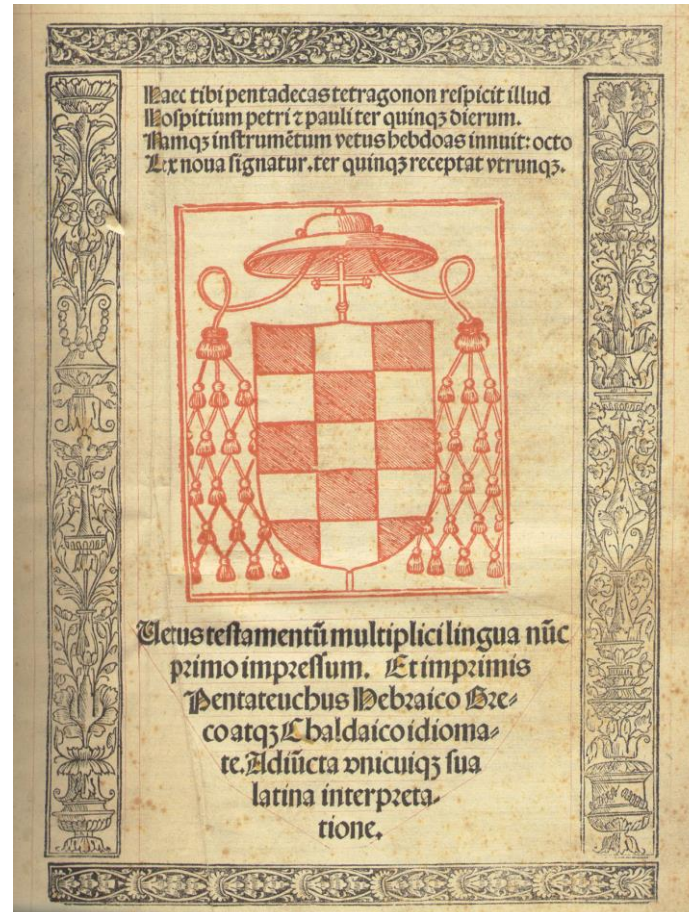 Haec tibi pentadecas tetragonon respicit illud
Hospitium petri ⁊ pauli ter quinqꝫ dierum.
Namqꝫ instrumētum vetus hebdoas innuit: octo
Lex noua signatur. ter quinqꝫ receptat vtrunqꝫ.
Uetus testamentū multiplici lingua nūc
primo impressum. Et imprimis
Pentateuchus Hebraico Gre⸗
co atqꝫ Chaldaico idioma⸗
te. Adiūcta vnicuiqꝫ sua
latina interpreta⸗
tione.